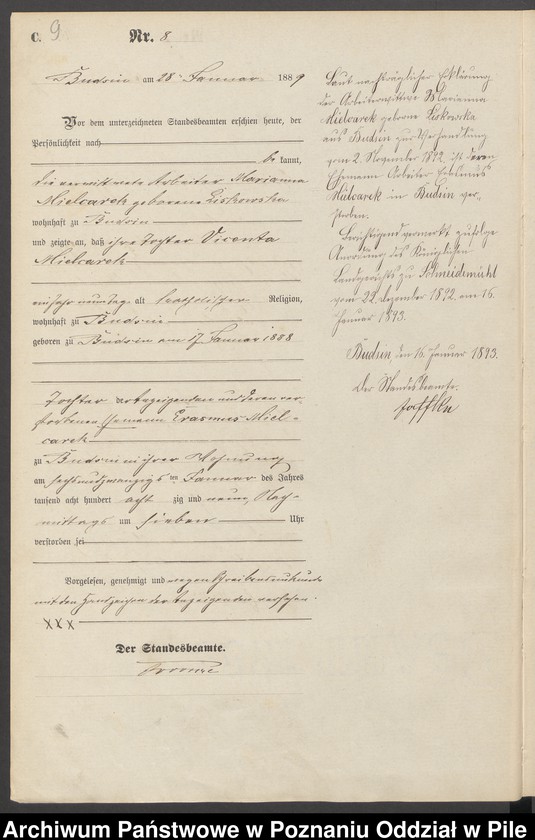 C. 9
Nr. 8
Budsin am 28 Januar 1889
Vor dem unterzeichneten Standesbeamten erschien heute, der
Persönlichkeit nach
be kannt,
die verwittwete Arbeiter Marianna
Mielcarek geborene Liskowska
wohnhaft zu Budsin
und zeigte an, daß ihre Tochter Vicenta
Mielcarek
ein Jahr neun Tage alt katholischer Religion,
wohnhaft zu Budsin
geboren zu Budsin am 17 Januar 1888
Tochter der Anzeigenden und deren ver-
storbenen Ehemann Erasmus Miel-
carek
zu Budsin in ihrer Wohnung
am sechsundzwanzigsten Januar des Jahres
tausend acht hundert acht zig und neun, Nach-
mittags um sieben Uhr
verstorben sei
Vorgelesen, genehmigt und wegen Schreibensunkunde
mit den Handzeichen der Anzeigenden versehen.
XXX
Der Standesbeamte.
Laut nachträglicher Erklärung
der Arbeiterwittwe Marianna
Mielcarek geborene Liskowska
aus Budsin zur Verhandlung
vom 2. November 1892 ist deren
Ehemann Arbeiter Erasmus
Mielcarek in Budsin ver-
storben.
Berichtigend vermerkt zufolge
Anordnung des Königlichen
Landgerichts zu Schneidemühl
vom 22. Dezember 1892 am 16.
Januar 1893.
Budsin, den 16. Januar 1893.
Der Standesbeamte.
Archiwum Państwowe w Poznaniu Oddział w Pile